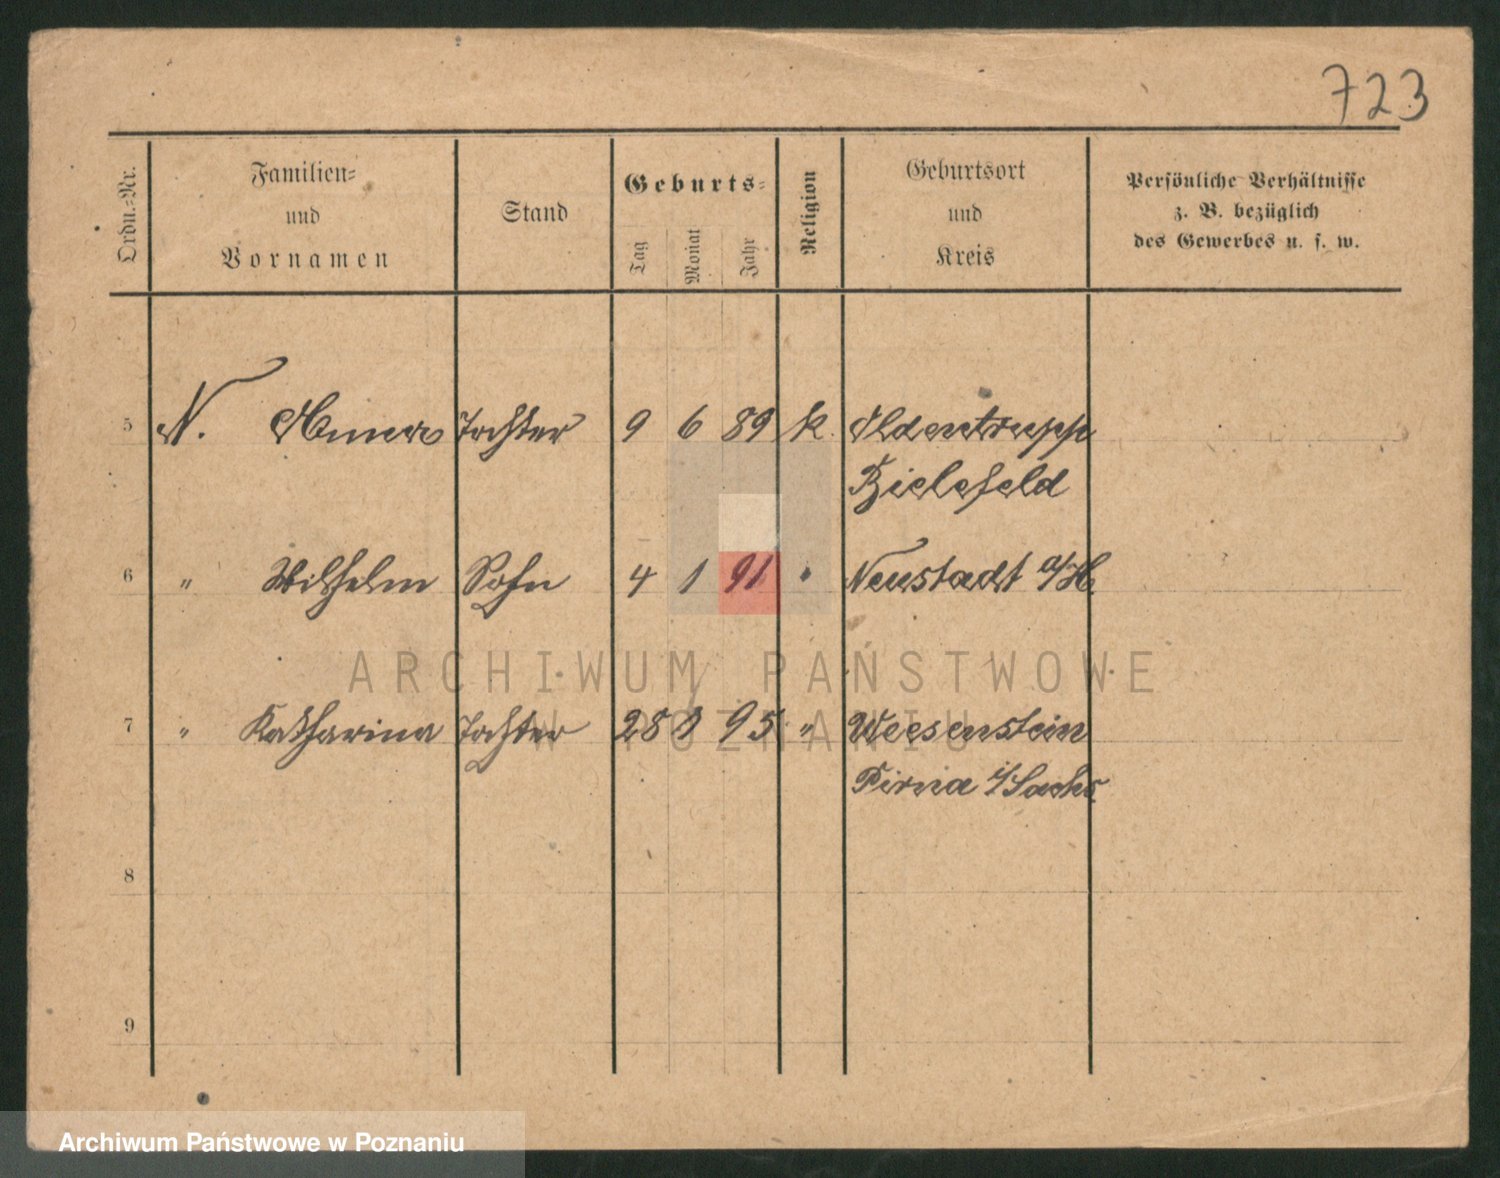 723
Ordn.-Nr.
Familien-
und
Vornamen
Stand
Geburts-
Tag
Monat
Jahr
Religion
Geburtsort
und
Kreis
Persönliche Verhältnisse
z. B. bezüglich
des Gewerbes u. s. w.
5 N. Tochter 9 6 89 k. Oldentrupp
Bielefeld
6 " Wilhelm Sohn 4 1 91 " Neustadt a/H.
7 " Katharina Tochter 28 95 " Weesenstein
Pirna i/Sachs.
8
9
ARCHIWUM PAŃSTWOWE
W POZNANIU
Archiwum Państwowe w Poznaniu